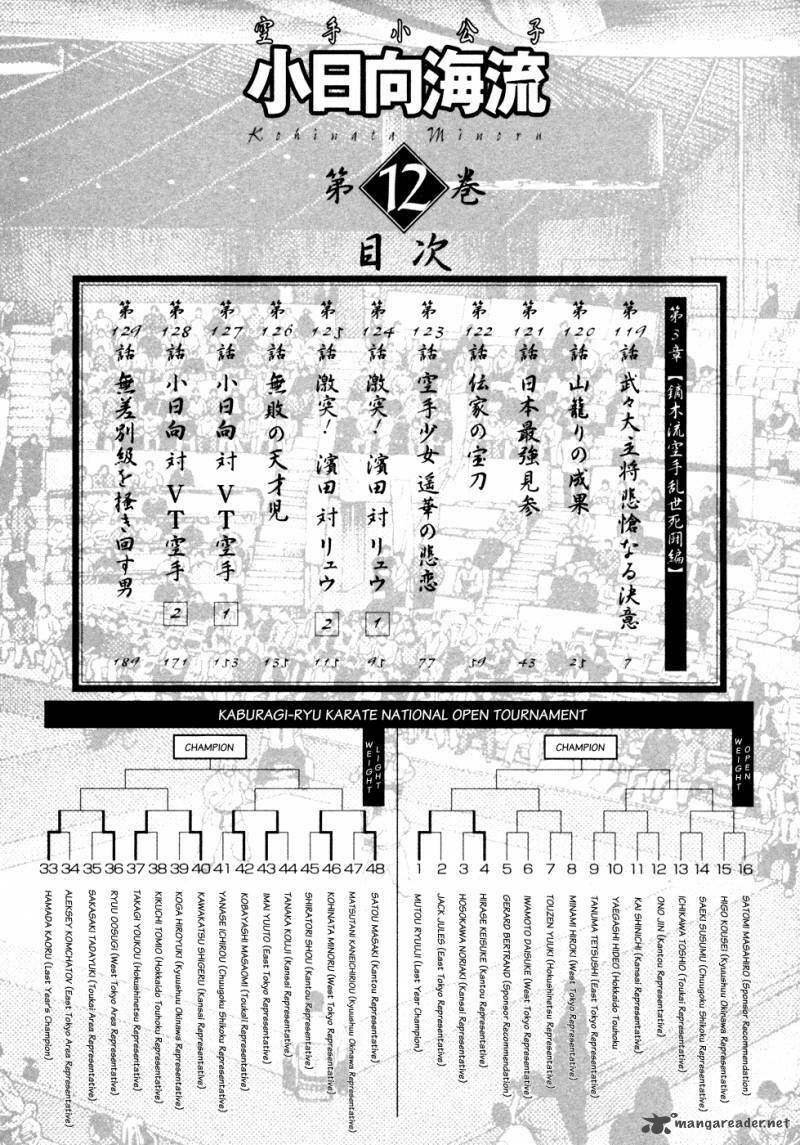 空手小公子
小日向海流
Kohinata Minoru
第12巻
目次
第5章【鏑木流空手乱世死闘編】
第119話 武々大主将悲愴なる決意 7
第120話 山籠りの成果 25
第121話 日本最強見参 43
第122話 伝家の宝刀 59
第123話 空手少女遥華の悲恋 77
第124話 激突! 濱田対リュウ 1 95
第125話 激突! 濱田対リュウ 2 115
第126話 無敗の天才児 135
第127話 小日向対VT空手 1 153
第128話 小日向対VT空手 2 171
第129話 無差別級を掻き回す男 189
KABURAGI-RYU KARATE NATIONAL OPEN TOURNAMENT
CHAMPION
LIGHT WEIGHT
33 HAMADA KAORU (Last Year's Champion)
34 ALEKSEY KOMCHATOV (East Tokyo Area Representative)
35 SAKASAKI TADAYUKI (Toukai Area Representative)
36 RYUU OOSUGI (West Tokyo Area Representative)
37 TAKAGI YOUKOU (Hokushinetsu Representative)
38 KIKUCHI TOMIO (Hokkaido Touhoku Representative)
39 KOGA HIROYUKI (Kyuushuu Okinawa Representative)
40 KAWAKATSU SHIGERU (Kansai Representative)
41 YANASE ICHIROU (Chuugoku Shikoku Representative)
42 KOBAYASHI MASAOMI (Toukai Representative)
43 IMAI YUUTO (East Tokyo Representative)
44 TANAKA KOUJI (Kansai Representative)
45 SHIRATORI SHOU (Kantou Representative)
46 KOHINATA MINORU (West Tokyo Representative)
47 MATSUTANI KANEICHIROU (Kyuushuu Okinawa Representative)
48 SATOU MASAKI (Kantou Representative)
CHAMPION
OPEN WEIGHT
1 MUTOU RYUUJI (Last Year Champion)
2 JACK JULES (East Tokyo Representative)
3 HOSOKAWA NORIAKI (Kansai Representative)
4 HIRASE KEISUKE (Kantou Representative)
5 GERARD BERTRAND (Sponsor Recommendation)
6 IWAMOTO DAISUKE (West Tokyo Representative)
7 TOUZEN YUUKI (Hokushinetsu Representative)
8 MINAMI HIROKI (West Tokyo Representative)
9 TANUMA TETSUSHI (East Tokyo Representative)
10 YAEGASHI HIDEO (Hokkaido Touhoku
11 KAI SHINICHI (Kansai Representative)
12 ONO JIN (Kantou Representative)
13 ICHIKAWA TOSHIO (Toukai Representative)
14 SAEKI SUSUMU (Chuugoku Shikoku Representative)
15 HIGO KOUSEI (Kyuushuu Okinawa Representative)
16 SATOMI MASAHIRO (Sponsor Recommendation)
mangareader.net